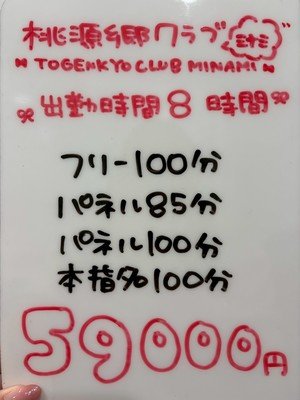 桃源郷クラブ ミナミ
TOGENKYO CLUB MINAMI
出勤時間8時間
フリー100分
パネル85分
パネル100分
本指名100分
59000円